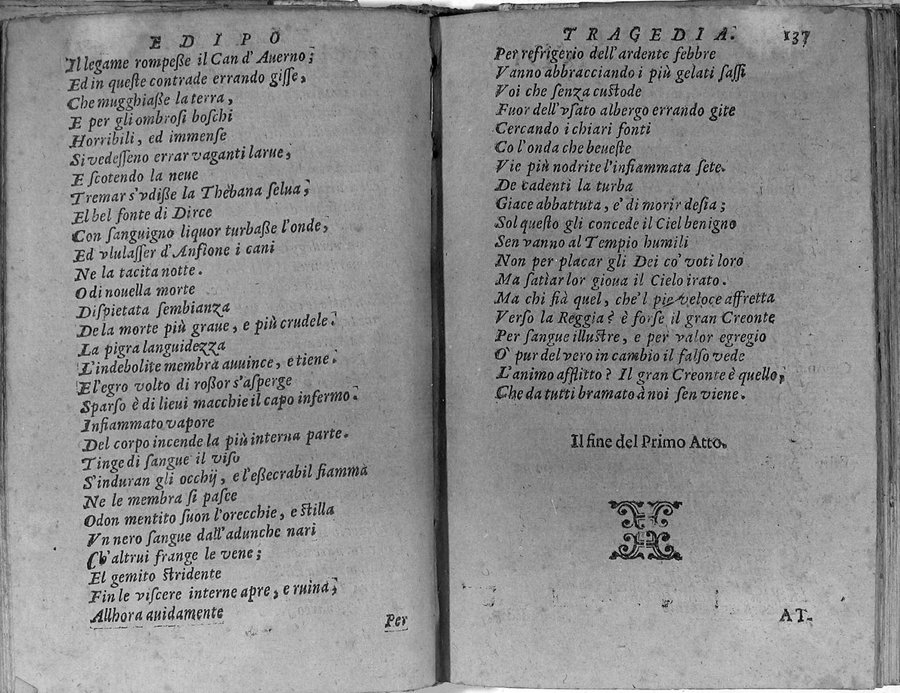 EDIPO
Il legame rompeſſe il Can d' Auerno;
Ed in queſte contrade errando giſſe,
Che mugghiaſſe la terra,
E per gli ombroſi boſchi
Horribili, ed immenſe
Si vedeſſeno errar vaganti larue,
E ſcotendo la neue
Tremar s'vdiſſe la Thebana ſelua;
El bel fonte di Dirce
Con ſanguigno liquor turbaſſe l'onde,
Ed vlulaſſer d'Anfione i cani
Ne la tacita notte.
O di nouella morte
Diſpietata ſembianza
De la morte più graue, e più crudele.
La pigra languidezza
L'indebolite membra auuince, e tiene.
El'egro volto di roſſor s'aſperge
Sparſo è di lieui macchie il capo infermo.
Infiammato vapore
Del corpo incende la più interna parte.
Tinge di ſangue il viſo
S'induran gli occhij, e l'eſſecrabil fiamma
Ne le membra ſi paſce
Odon mentito ſuon l'orecchie, e ſtilla
Vn nero ſangue dall'adunche nari
Ch'altrui frange le vene;
El gemito ſtridente
Fin le viſcere interne apre, e ruina;
Allhora auidamente
Per
TRAGEDIA. 137
Per refrigerio dell'ardente febbre
Vanno abbracciando i più gelati ſaſſi
Voi che ſenza cuſtode
Fuor dell'vſato albergo errando gite
Cercando i chiari fonti
Co l'onda che beueſte
Vie più nodrite l'infiammata ſete.
De cadenti la turba
Giace abbattuta, e' di morir deſia;
Sol queſto gli concede il Ciel benigno
Sen vanno al Tempio humili
Non per placar gli Dei co' voti loro
Ma ſatiar lor gioua il Cielo irato.
Ma chi fià quel, che'l piè veloce affretta
Verſo la Reggia? è forſe il gran Creonte
Per ſangue illuſtre, e per valor egregio
O' pur del vero in cambio il falſo vede
L'animo afflitto? Il gran Creonte è quello,
Che da tutti bramato à noi ſen viene.
Il fine del Primo Atto.
AT-